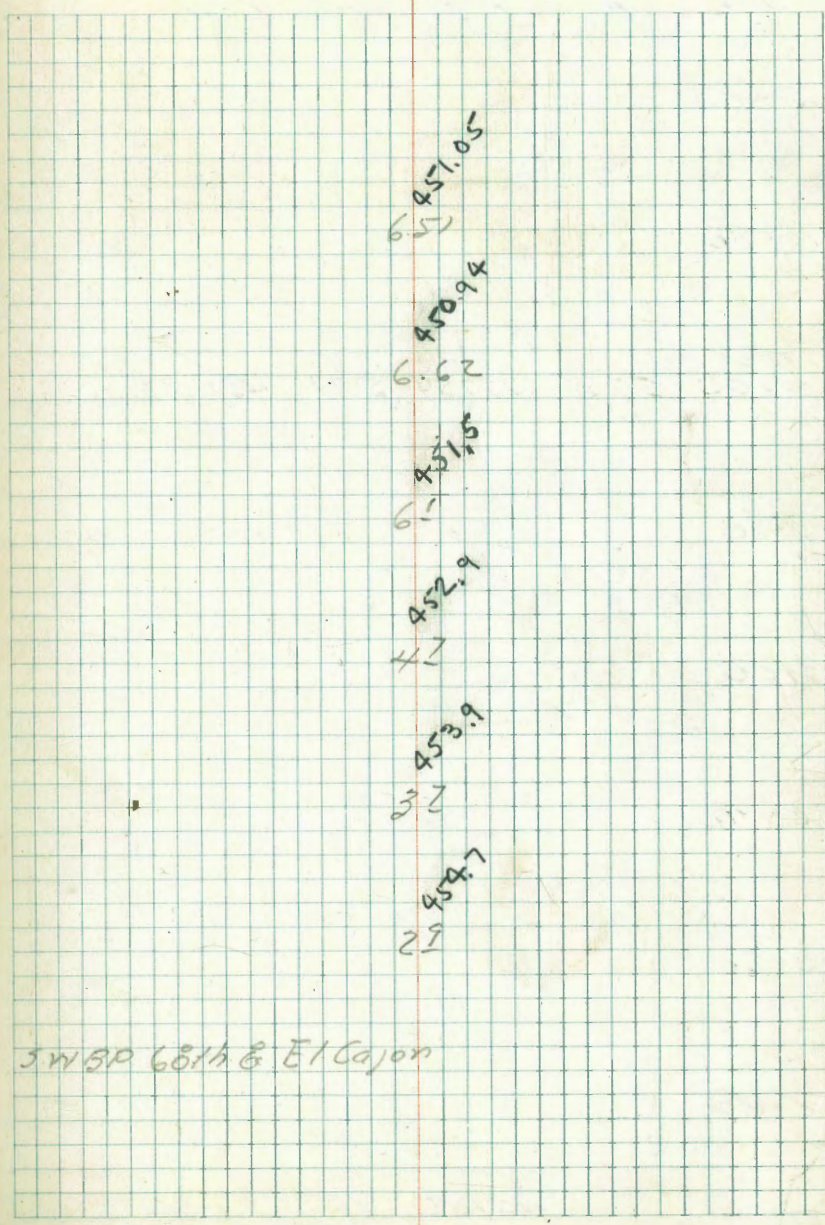 451.05
6.51
450.94
6.62
451.5
61
452.9
47
453.9
37
454.7
29
SWBP 68th & El Cajon